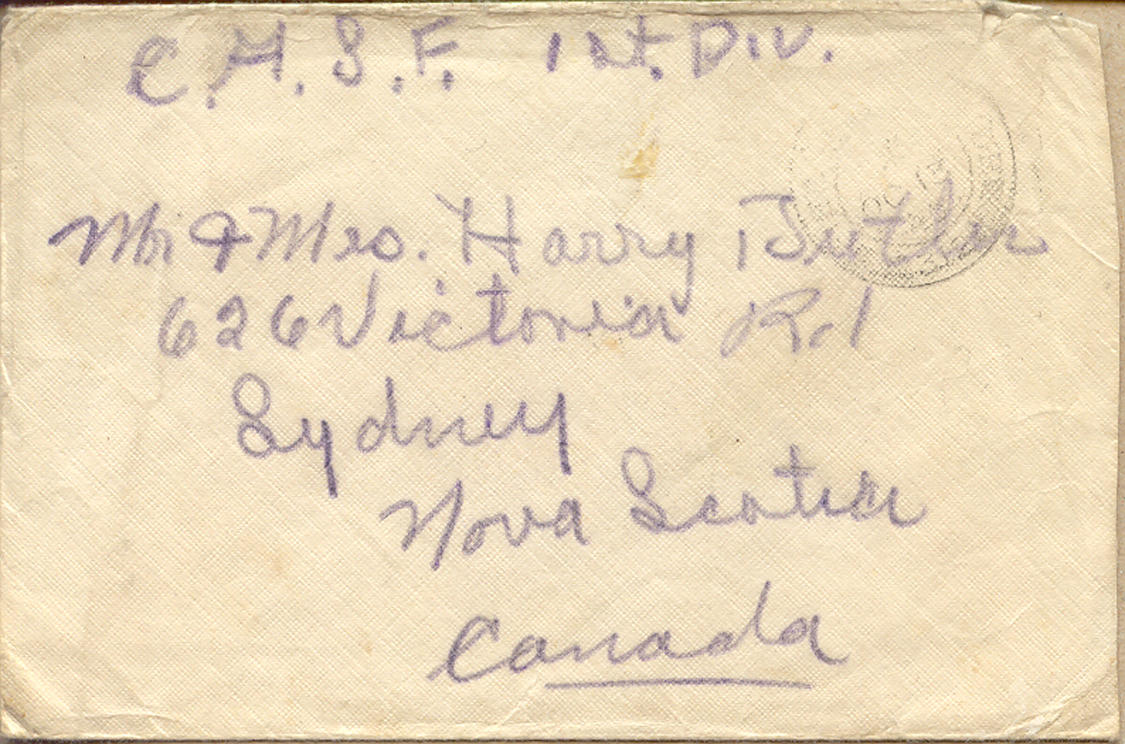 C.A.S.F. 1st. Div.
Mr & Mrs. Harry Butler
626 Victoria Rd
Sydney
Nova Scotia
Canada